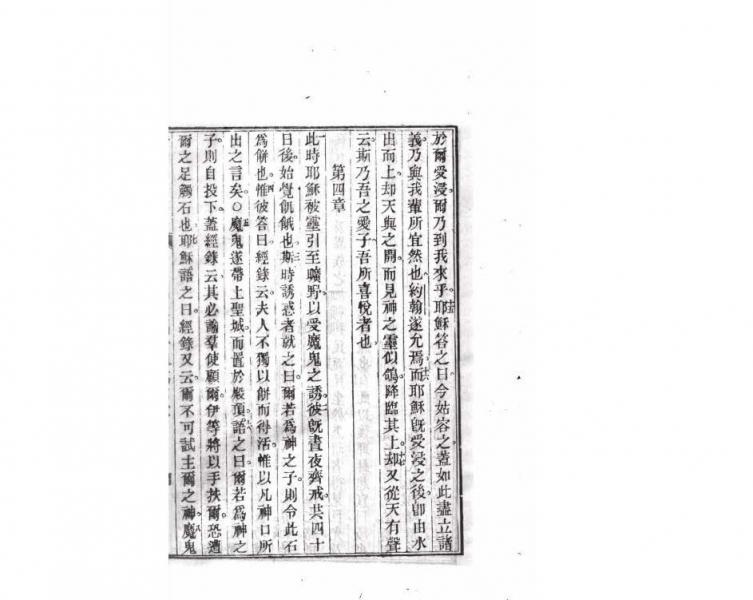 於爾受浸爾乃到我來乎十五耶穌答之曰今姑容之蓋如此盡立諸
義乃與我輩所宜然也約翰遂允焉十六而耶穌既受浸之後卽由水
出而上却天與之開而見神之靈似鴿降臨其上十七却又從天有聲
云斯乃吾之愛子吾所喜悅者也
第四章
一此時耶穌被靈引至曠野以受魔鬼之誘二彼既晝夜齊戒共四十
日後始覺飢餓也三斯時誘惑者就之曰爾若爲神之子則令此石
爲餅也四惟彼答曰經錄云夫人不獨以餅而得活惟以凡神口所
出之言矣〇五魔鬼遂帶上聖城而置於殿頂六語之曰爾若爲神之
子則自投下蓋經錄云其必諭羣使顧爾伊等將以手扶爾恐遭
爾之足觸石也七耶穌語之曰經錄又云爾不可試主爾之神八魔鬼